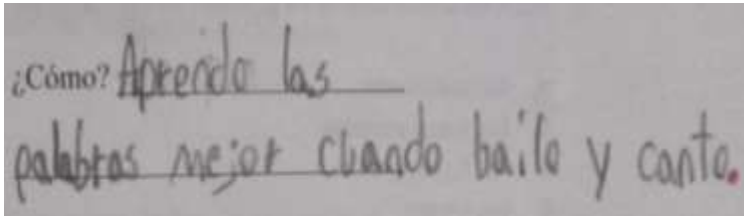 ¿Cómo? Aprendo las
palabras mejor cuando bailo y canto.